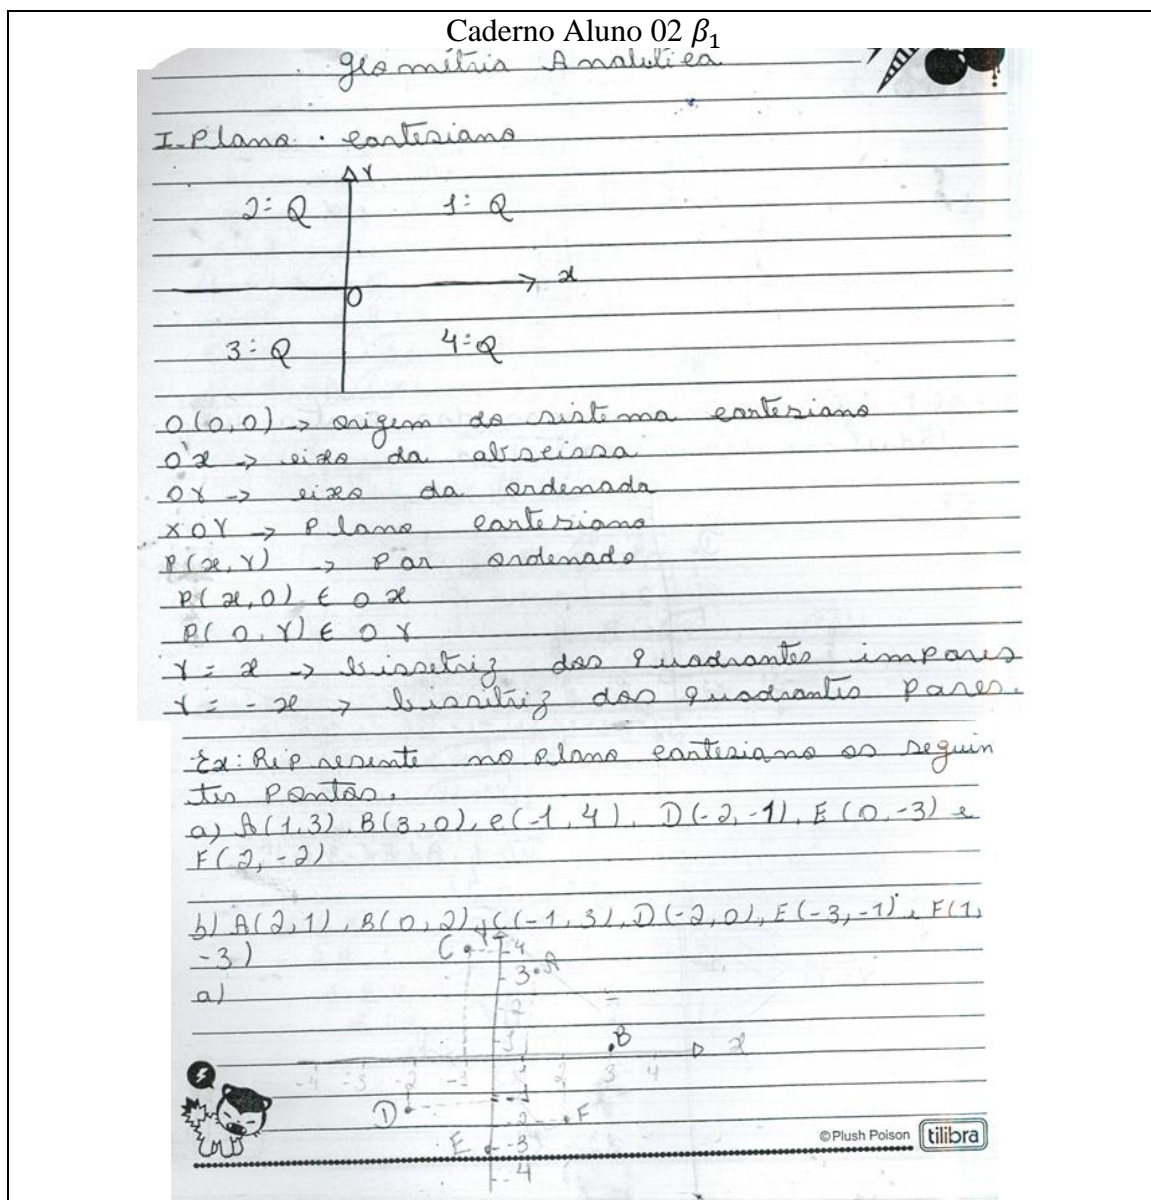 Caderno Aluno 02 β₁
Geométria Analitica
I-Plano . cartesiano
Y
2º Q 1º Q
x
O
3º Q 4º Q
O(0,0) -> origem do sistema cartesiano
Ox -> eixo da abscissa
OY -> eixo da ordenada
XOY -> Plano cartesiano
P(x,Y) -> Par ordenado
P(x,0) ∈ Ox
P(0,Y) ∈ OY
Y = x -> bissetriz dos quadrantes impares
Y = -x -> bissetriz dos quadrantes Pares.
Ex: Represente no plano cartesiano os seguin
tes Pontos.
a) A(1,3), B(3,0), C(-1,4), D(-2,-1), E(0,-3) e
F(2,-2)
b) A(2,1), B(0,2), C(-1,3), D(-2,0), E(-3,-1), F(1,
-3)
a)
C 4
3 A
2
1
B
x
-4 -3 -2 -1 1 2 3 4
-1
D
-2 F
E -3
-4
©Plush Poison tilibra